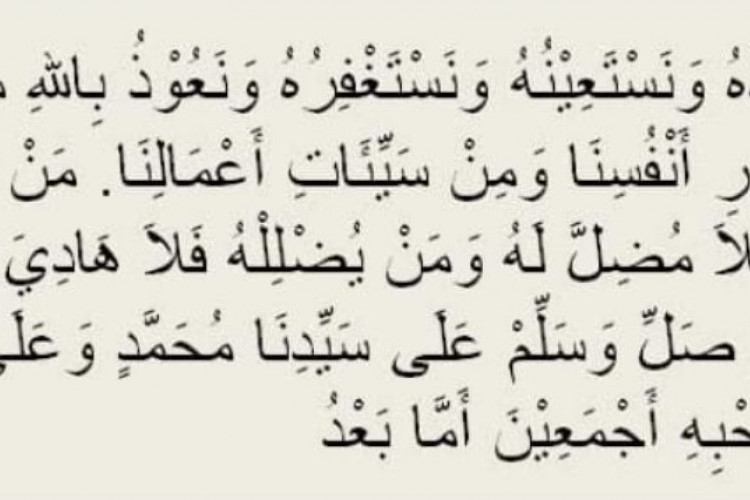 وَنَسْتَعِيْنُهُ وَنَسْتَغْفِرُهُ وَنَعُوْذُ بِاللهِ
أَنْفُسِنَا وَمِنْ سَيِّئَاتِ أَعْمَالِنَا. مَنْ
مُضِلَّ لَهُ وَمَنْ يُضْلِلْهُ فَلاَ هَادِيَ
صَلِّ وَسَلِّمْ عَلَى سَيِّدِنَا مُحَمَّدٍ وَعَلَى
أَجْمَعِيْنَ أَمَّا بَعْدُ